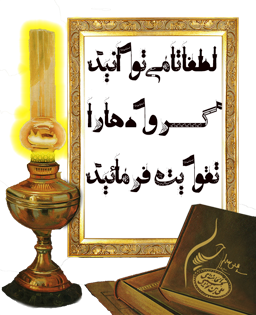 لطفاتامی توانید
گروه هارا
تقویت فرمائید